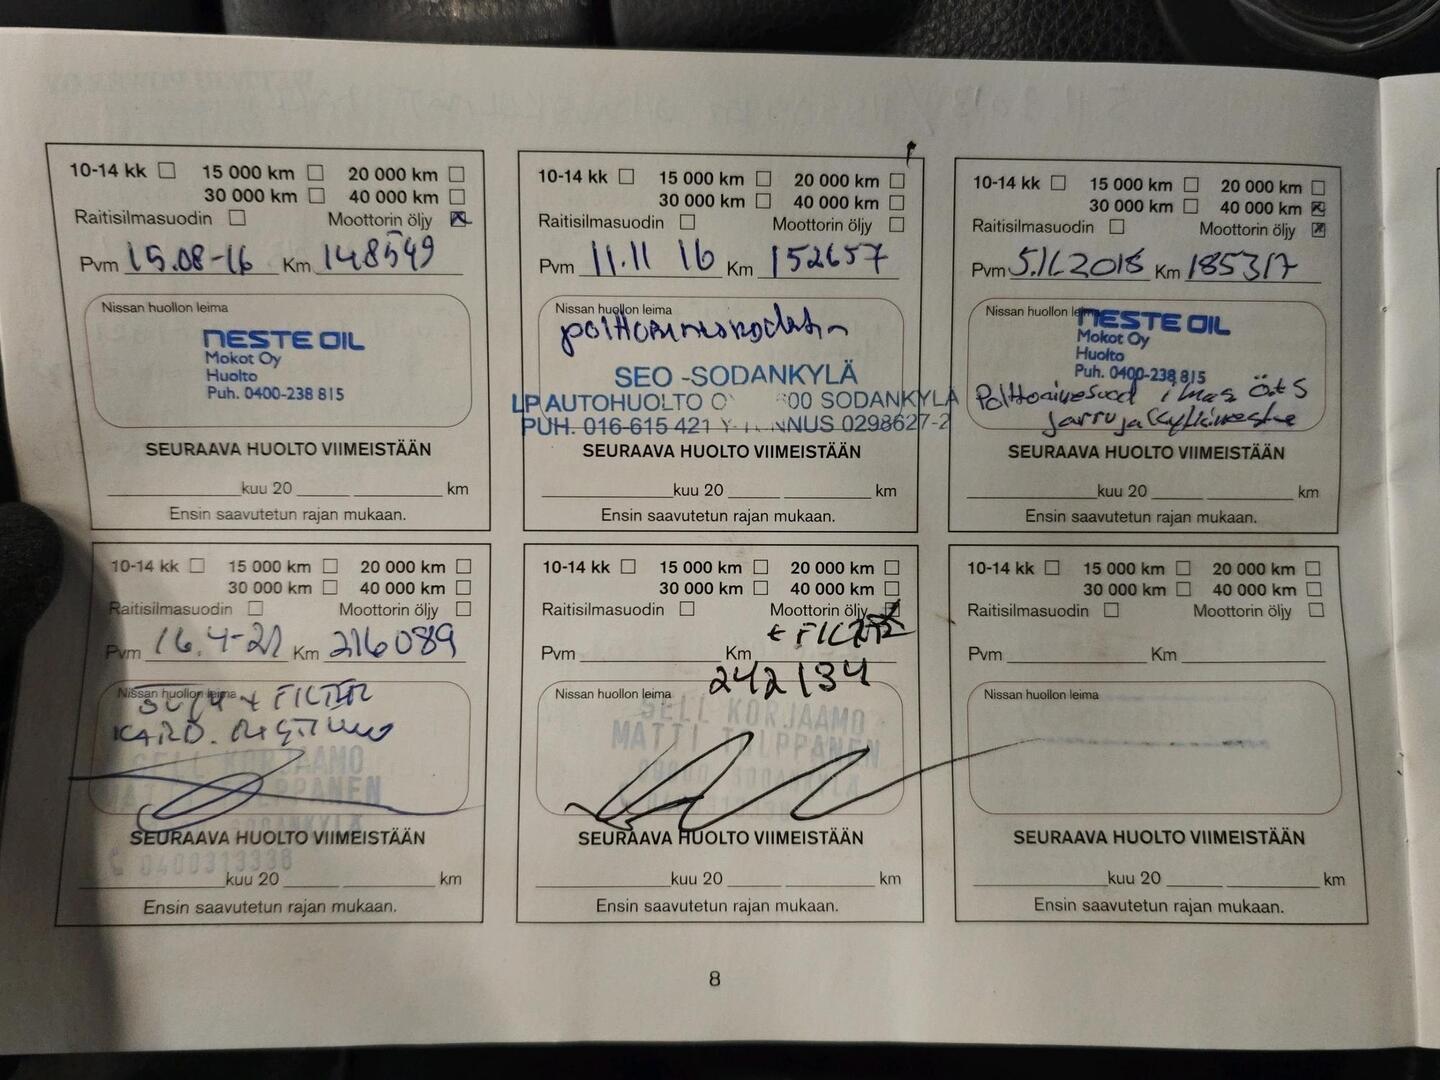 10-14 kk 15 000 km 20 000 km
30 000 km 40 000 km
Raitisilmasuodin Moottorin öljy
Pvm 15.08-16 Km 148549
Nissan huollon leima
NESTE OIL
Mokot Oy
Huolto
Puh. 0400-238 815
SEURAAVA HUOLTO VIIMEISTÄÄN
kuu 20 km
Ensin saavutetun rajan mukaan.
10-14 kk 15 000 km 20 000 km
30 000 km 40 000 km
Raitisilmasuodin Moottorin öljy
Pvm 11.11 16 Km 152657
Nissan huollon leima
SEO -SODANKYLÄ
LP AUTOHUOLTO 00 SODANKYLÄ
PUH. 016-615 421 Y-TUNNUS 0298627-2
SEURAAVA HUOLTO VIIMEISTÄÄN
kuu 20 km
Ensin saavutetun rajan mukaan.
10-14 kk 15 000 km 20 000 km
30 000 km 40 000 km
Raitisilmasuodin Moottorin öljy
Pvm 5.11.2018 Km 185317
Nissan huollon leima
NESTE OIL
Mokot Oy
Huolto
Puh. 0400-238 815
Polttoainesuod ilmas
jarru ja kytkinneste
SEURAAVA HUOLTO VIIMEISTÄÄN
kuu 20 km
Ensin saavutetun rajan mukaan.
10-14 kk 15 000 km 20 000 km
30 000 km 40 000 km
Raitisilmasuodin Moottorin öljy
Pvm 16.4-21 Km 216089
Nissan huollon leima
+ FILTER
KARD.
SELL KORJAAMO
MATTI TOLPPANEN
SODANKYLÄ
0400313338
SEURAAVA HUOLTO VIIMEISTÄÄN
kuu 20 km
Ensin saavutetun rajan mukaan.
10-14 kk 15 000 km 20 000 km
30 000 km 40 000 km
Raitisilmasuodin Moottorin öljy
+ FILTER
Pvm Km
242134
Nissan huollon leima
SELL KORJAAMO
MATTI TOLPPANEN
SODANKYLÄ
SEURAAVA HUOLTO VIIMEISTÄÄN
kuu 20 km
Ensin saavutetun rajan mukaan.
10-14 kk 15 000 km 20 000 km
30 000 km 40 000 km
Raitisilmasuodin Moottorin öljy
Pvm Km
Nissan huollon leima
SEURAAVA HUOLTO VIIMEISTÄÄN
kuu 20 km
Ensin saavutetun rajan mukaan.
8